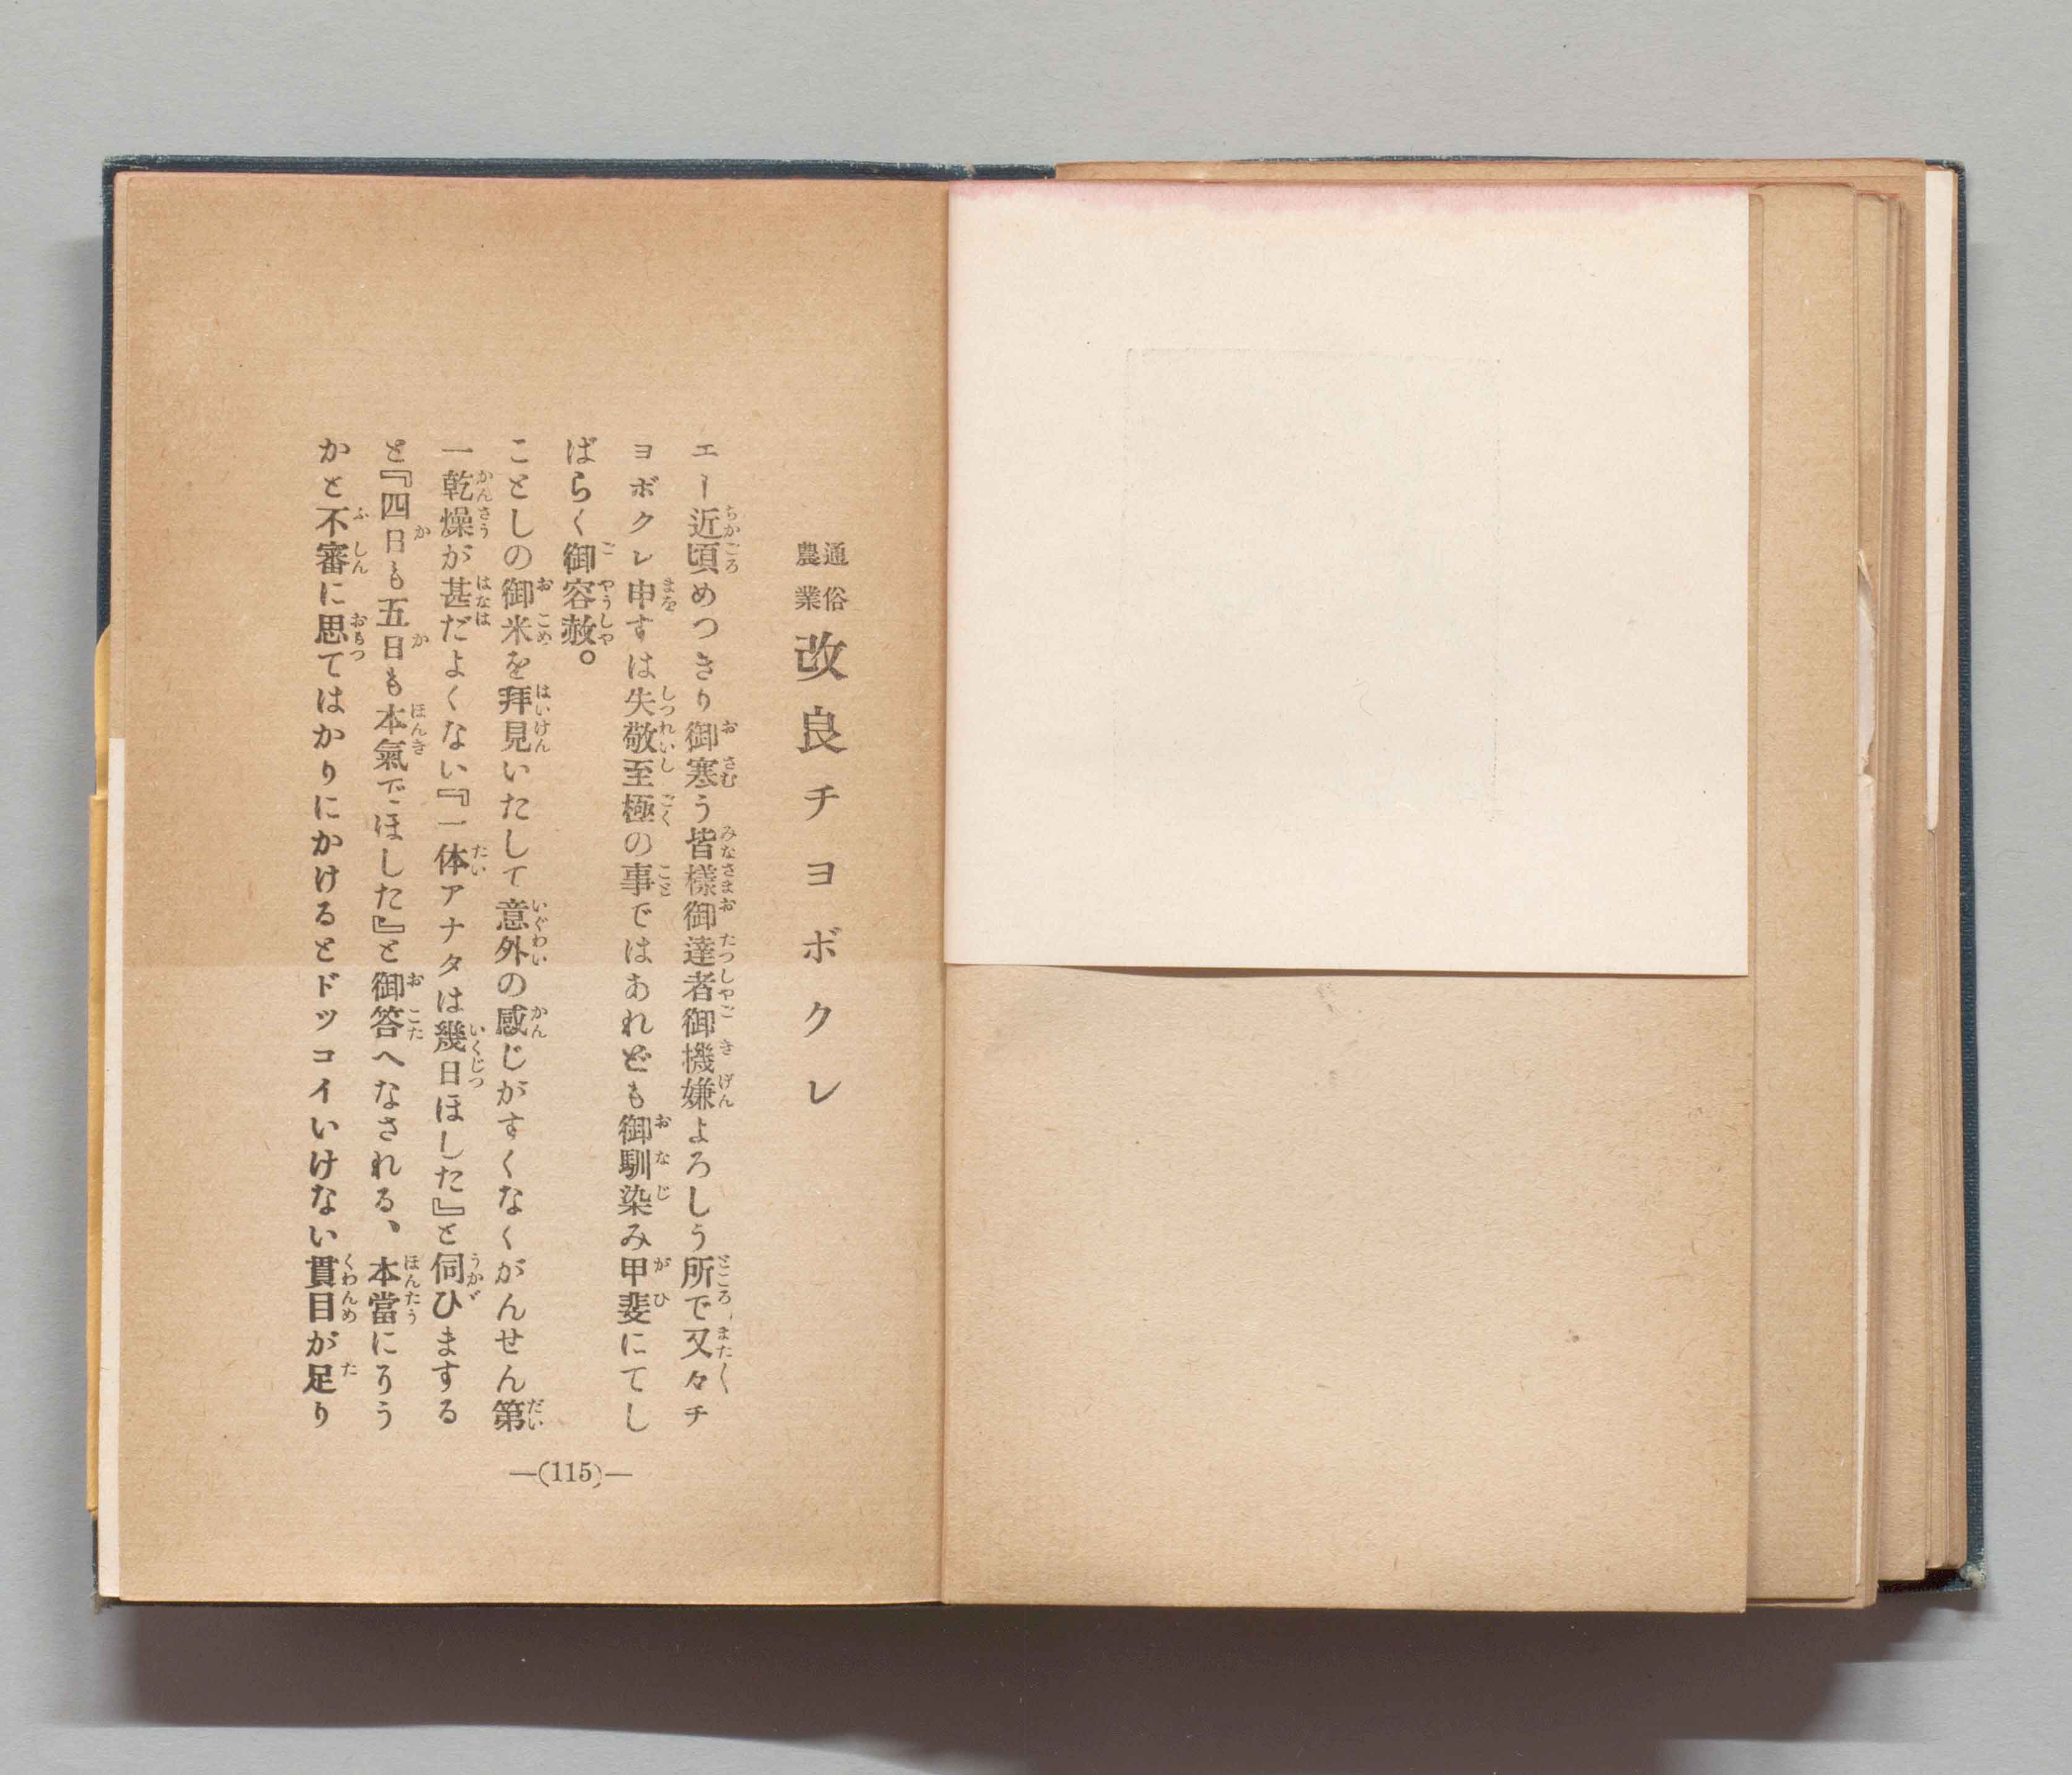 通俗農業 改良チヨボクレ
エー近頃めつきり御寒う皆樣御達者御機嫌よろしう所で又々チ
ヨボクレ申すは失敬至極の事ではあれども御馴染み甲斐にてし
ばらく御容赦。
ことしの御米を拜見いたして意外の感じがすくなくがんせん第
一乾燥が甚だよくない『一体アナタは幾日ほした』と伺ひまする
と『四日も五日も本氣でほした』と御答へなされる、本當にろう
かと不審に思てはかりにかけるとドツコイいけない貫目が足り
—(115)—